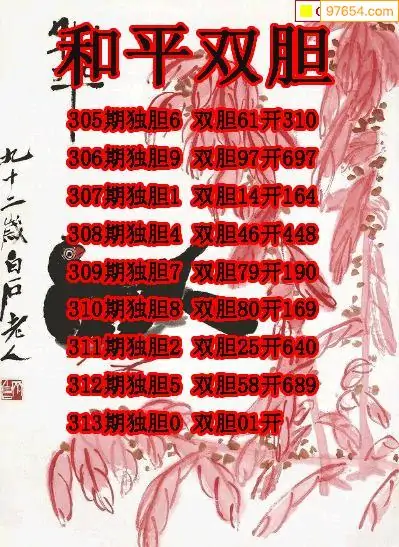 97654.com
和平双胆
305期独胆6 双胆61开310
306期独胆9 双胆97开697
307期独胆1 双胆14开164
308期独胆4 双胆46开448
309期独胆7 双胆79开190
310期独胆8 双胆80开169
311期独胆2 双胆25开640
312期独胆5 双胆58开689
313期独胆0 双胆01开
九十二岁白石老人